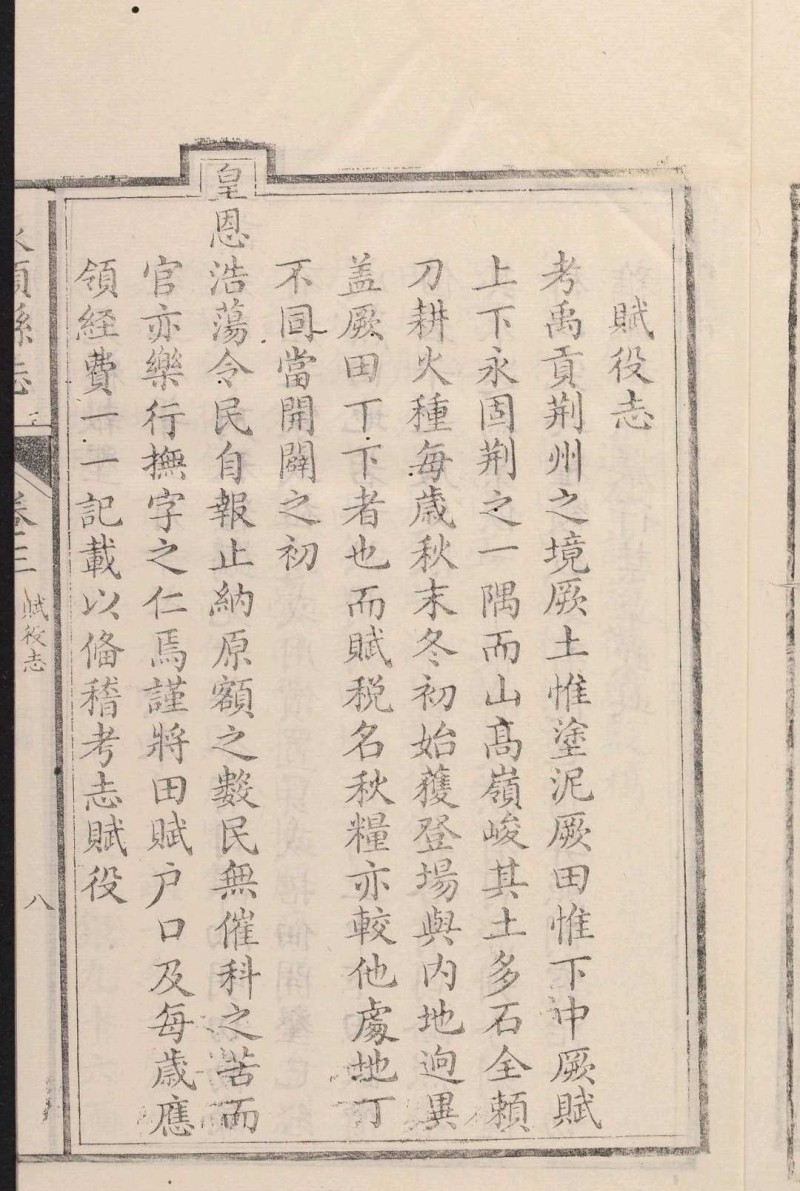 賦役志
考禹貢荆州之境厥土惟塗泥厥田惟下中厥賦
上下永固荆之一隅而山髙嶺峻其土多石全賴
刀耕火種每歲秋末冬初始獲登場與内地逈異
盖厥田丅下者也而賦税名秋糧亦較他處地丁
不同當開闢之初
皇恩浩蕩令民自報止納原額之數民無催科之苦而
官亦樂行撫字之仁焉謹將田賦户口及每歲應
領經費一一記載以偹稽考志賦役
順縣志
卷三
賦役志
八